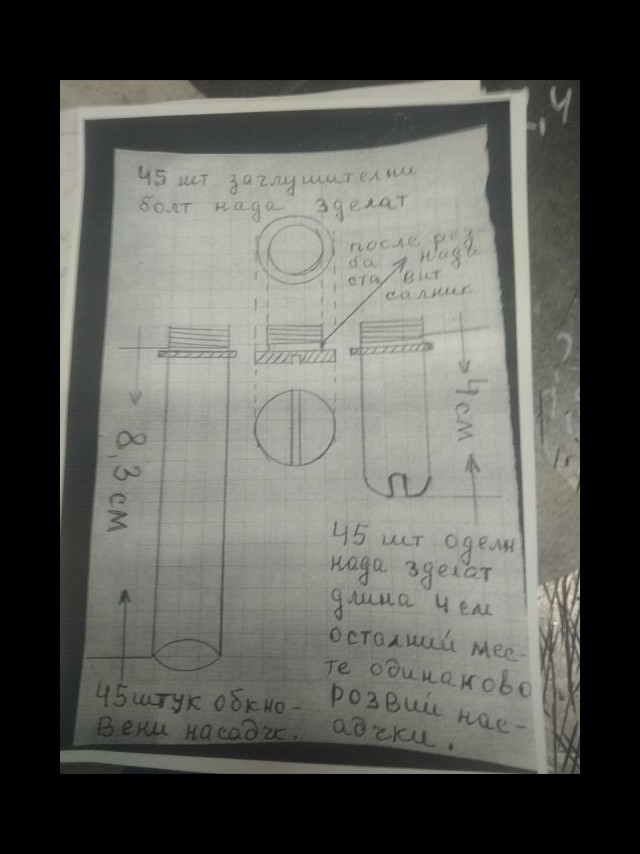 45 шт заглушителни
болт нада зделат
после рез
ба нада
ста вит
салник
4 см
8,3 см
45 шт оделн
нада зделат
длина 4 см
осталний мес-
те одинаково
розвий нас-
адчки.
45 штук обкно-
вени насадчк.